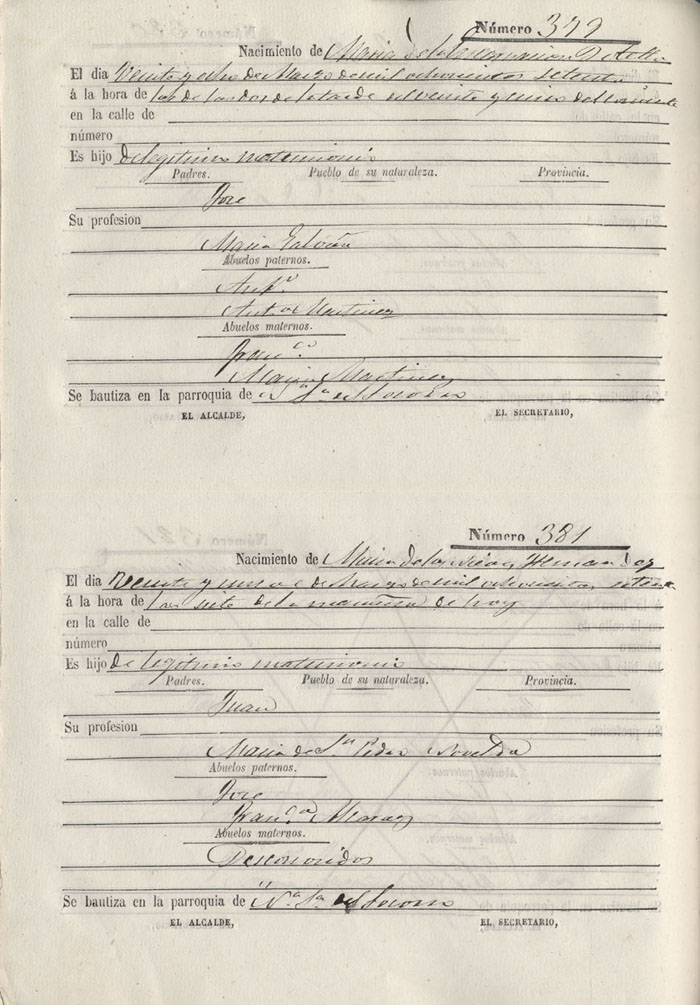 Número 379
Nacimiento de Maria de la Encarnacion
El dia Veinte y de Marzo de mil ochocientos setenta
á la hora de las de las dos de la tarde del veinte y
en la calle de
número
Es hijo de legitimo matrimonio
Padres. Pueblo de su naturaleza. Provincia.
Jose
Su profesion
Maria Galvañ
Abuelos paternos.
Ant.ª Martinez
Abuelos maternos.
Fran.co
Maria Martinez
Se bautiza en la parroquia de N.ª S.ª del Socorro
EL ALCALDE, EL SECRETARIO,
Número 381
Nacimiento de Maria de Hernandez
El dia Veinte y nueve de Marzo de mil ochocientos setenta
á la hora de las siete de la mañana de hoy
en la calle de
número
Es hijo de legitimo matrimonio
Padres. Pueblo de su naturaleza. Provincia.
Juan
Su profesion
Maria de Sn Pedro Novelda
Abuelos paternos.
Jose
Fran.ca
Abuelos maternos.
Desconocidos
Se bautiza en la parroquia de N.ª S.ª del Socorro
EL ALCALDE, EL SECRETARIO,